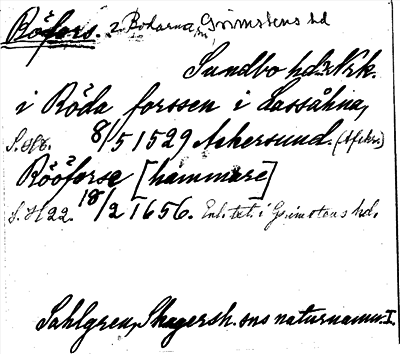 Röfors. 2. Bodarna, Grimstens hd
Sundbo hd. Nrk.
i Röda forssen i Lassåhna,
S. H8. 8/5 1529 Askersund.
Rööforse [hammare]
S. H 22. 18/2 1656. Enl. txt. i Grimstens hd.
Sahlgren, Skagersh. sns naturnamn. I.